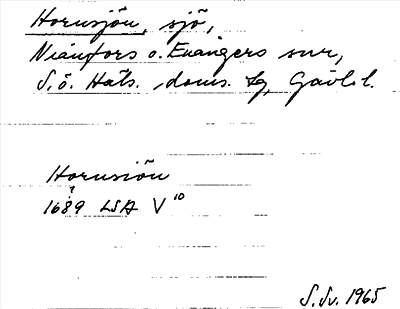 Hornsjön, sjö,
Nianfors o. Enångers snr,
S. ö. Häls. doms. tg, Gävl. l.
Hornsiön
1689 LSA V 10
S. Sv. 1965